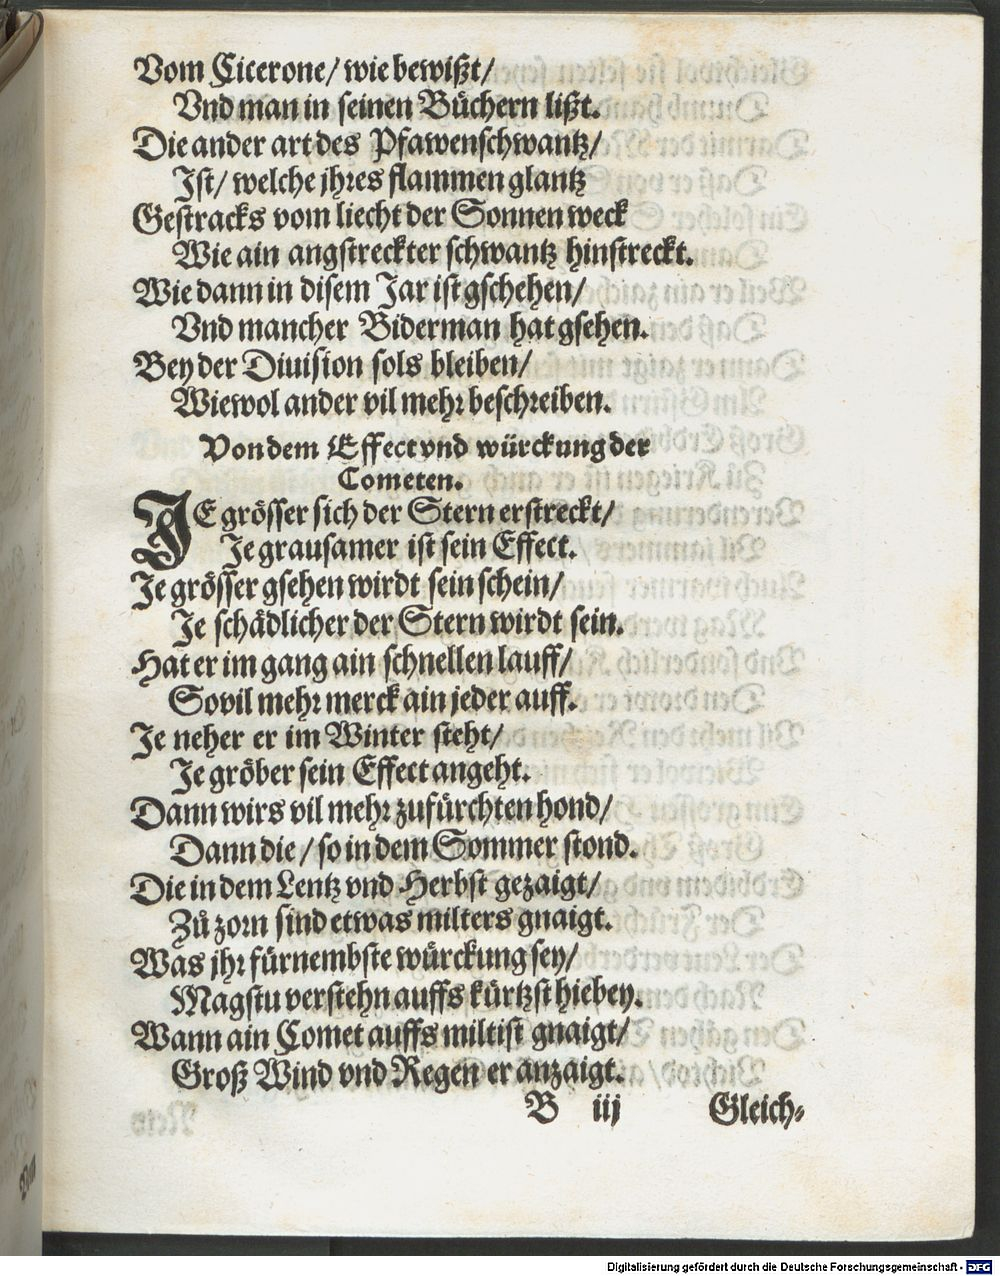 Vom Cicerone/ wie bewißt/
Vnd man in seinen Büchern lißt.
Die ander art des Pfawenschwantz/
Ist/ welche jhres flammen glantz
Gestracks vom liecht der Sonnen weck
Wie ain angstreckter schwantz hinstreckt.
Wie dann in disem Jar ist gschehen/
Vnd mancher Biderman hat gsehen.
Bey der Diuision sols bleiben/
Wiewol ander vil mehr beschreiben.
Von dem Effect vnd würckung der
Cometen.
JE grösser sich der Stern erstreckt/
Je grausamer ist sein Effect.
Je grösser gsehen wirdt sein schein/
Je schädlicher der Stern wirdt sein.
Hat er im gang ain schnellen lauff/
Sovil mehr merck ain jeder auff.
Je neher er im Winter steht/
Je gröber sein Effect angeht.
Dann wirs vil mehr zufürchten hond/
Dann die/ so in dem Sommer stond.
Die in dem Lentz vnd Herbst gezaigt/
Zů zorn sind etwas milters gnaigt.
Was jhr fürnembste würckung sey/
Magstu verstehn auffs kürtzst hiebey.
Wann ain Comet auffs miltist gnaigt/
Groß Wind vnd Regen er anzaigt.
B iij Gleich-
Digitalisierung gefördert durch die Deutsche Forschungsgemeinschaft - DFG